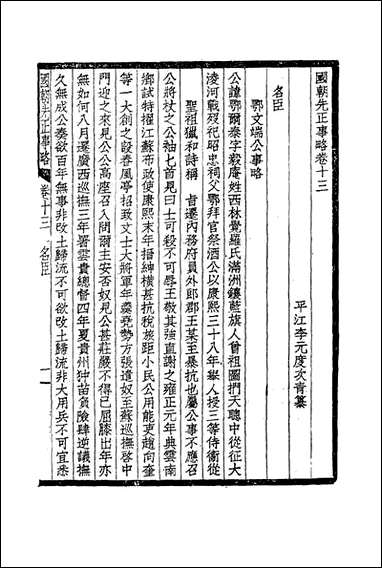 國朝先正事略卷十三
平江李元度次青纂
名臣
鄂文端公事略
公諱鄂爾泰字毅庵姓西林覺羅氏滿洲鑲藍旗人曾祖圖捫天聰中從征大
淩河戰歿祀昭忠祠父鄂拜官祭酒公以康熙三十八年舉人授三等侍衞從
聖祖獵和詩稱旨遷內務府員外郎郡王某至暴抗也屬公事不應召
公將杖之公袖匕首見曰士可殺不可辱王敬其強直謝之雍正元年典雲南
鄉試特擢江蘇布政使康熙末年搢紳横甚抗稅旅距小民公用能吏趙向奎
等一大創之設春風亭招致文士大將軍年羹堯勢方張遣奴至蘇巡撫啓中
門迎之來見公公高座召入問爾主安否奴見公甚莊嚴不得已屈膝出年亦
無如何八月遷廣西巡撫三年署雲貴總督四年夏貴州狆苗負險肆逆議撫
久無成公奏欲百年無事非改土歸流不可欲改土歸流非大用兵不可宜悉
國朝先正事略 卷十三 名臣 一